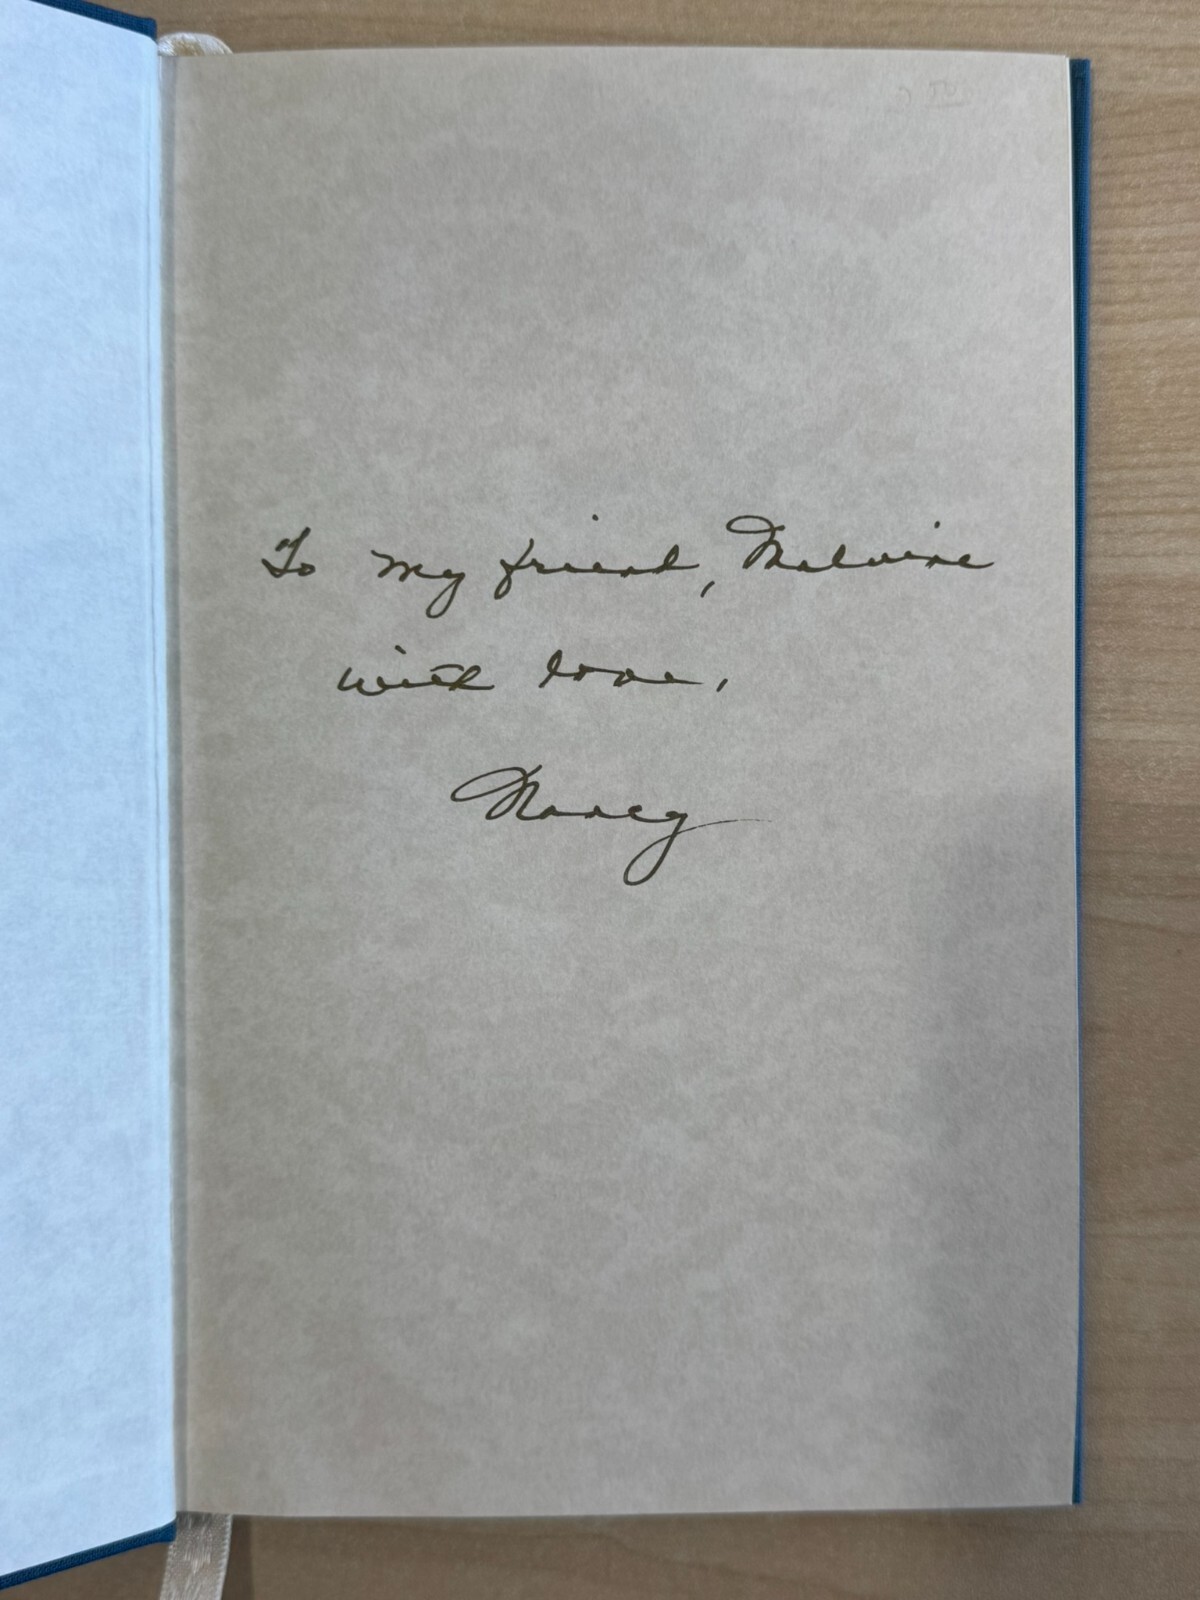 To my friend, Malvine
with love,
Nancy